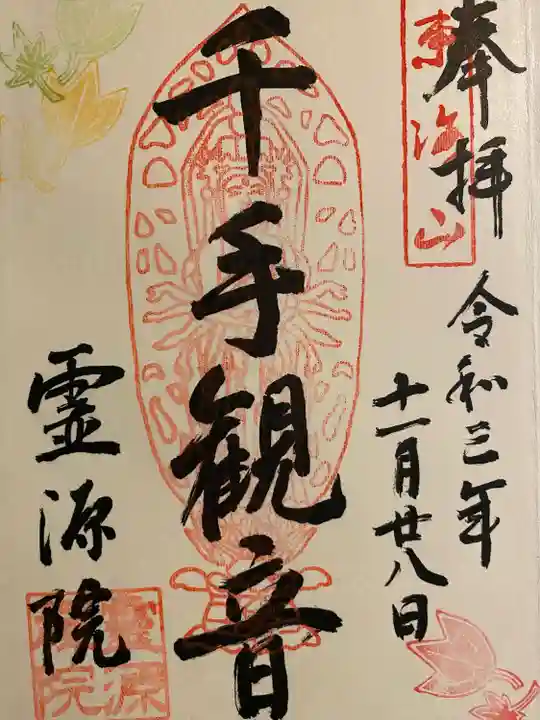 奉拝
東冶山
令和三年
十一月廿八日
千手観音
霊源院
霊源院